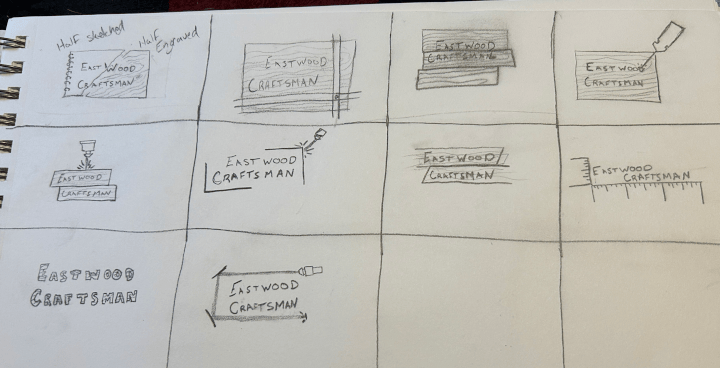 Half sketched
Half Engraved
EASTWOOD
CRAFTSMAN
EASTWOOD
CRAFTSMAN
EASTWOOD
CRAFTSMAN
EASTWOOD
CRAFTSMAN
EASTWOOD
CRAFTSMAN
EASTWOOD
CRAFTSMAN
EASTWOOD
CRAFTSMAN
EASTWOOD
CRAFTSMAN
EASTWOOD
CRAFTSMAN
EASTWOOD
CRAFTSMAN